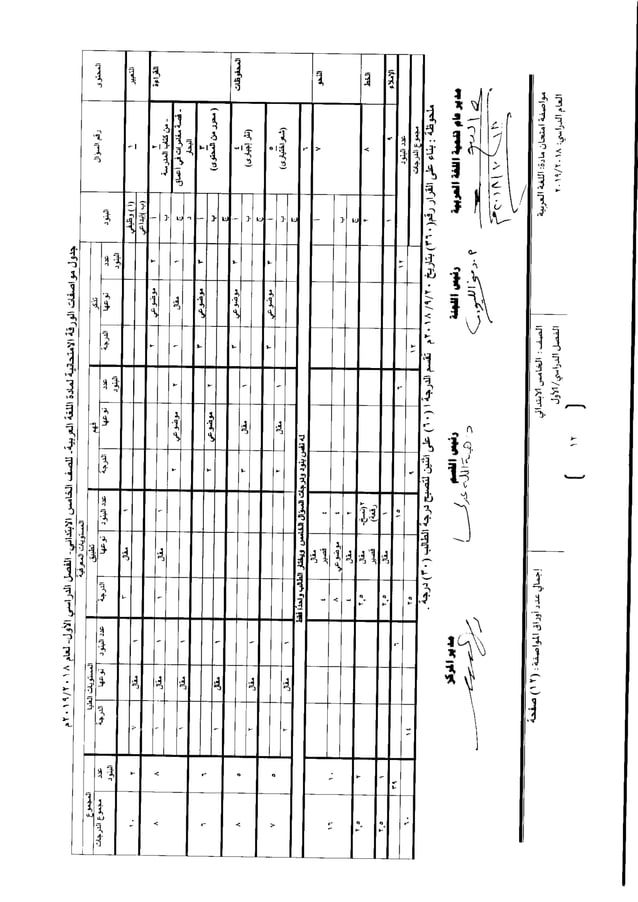 مواصفة امتحان مادة: اللغة العربية
الصف : الخامس الابتدائي
إجمالي عدد أوراق المواصفة : (١٢) صفحة
العام الدراسي: ٢٠١٩/٢٠١٨
الفصل الدراسي/ الأول
[ ١٢ ]
جدول مواصفات الورقة الامتحانية لمادة اللغة العربية - للصف الخامس الابتدائي - الفصل الدراسي الأول - لعام ٢٠١٩/٢٠١٨م
المحتوى
رقم السؤال
البنود
المستويات المعرفية
المستويات العليا
المجموع
تذكر
فهم
تطبيق
عدد البنود نوعها الدرجة
عدد البنود نوعها الدرجة
عدد البنود نوعها الدرجة
عدد البنود نوعها الدرجة
عدد البنود مجموع الدرجات
التعبير ١ (أ) وظيفي (ب) إبداعي ١ مقال ٣ ١ مقال ٧ ٢ ١٠
القراءة
٢ - من كتاب المدرسة أ ٢ موضوعي ٢ ١ مقال ١ ١ مقال ١ ٨ ٨
- قصة مغامرات في أعماق البحار ج د ١ مقال ١ ٢ موضوعي ٢ ١ مقال ١
٣ (محرر من المحتوى) أ ب ج ٣ موضوعي ٣ ٢ موضوعي ٢ ١ مقال ١ ٦ ٦
المحفوظات
٤ (نثر إجباري) أ ب ج ٣ موضوعي ٣ ١ مقال ٣ ١ مقال ٢ ٥ ٨
٥ (شعر اختياري) أ ب ج ٣ موضوعي ٣ ١ مقال ٢ ١ مقال ٢ ٥ ٧
٦ له نفس بنود ودرجات السؤال الخامس ويختار الطالب واحدًا فقط
النحو ٧ أ ب ج ٤ مقال قصير ٤ ٤ موضوعي ٨ ٢ مقال ٤ ١٠ ١٦
الخط ٨ ٢ (نسخ - رقعة) مقال قصير ٢,٥ ٢ ٢,٥
الإملاء ٩ ١ ١ مقال ٢,٥ ١ ٢,٥
عدد البنود ١٢ ٦ ١٥ ٦ ٣٩
مجموع الدرجات ١٢ ٩ ٢٥ ١٤ ٦٠
ملحوظة : بناء على القرار رقم (٣٦٠) بتاريخ ٢٠١٨/٩/٢٠م تقسم الدرجة (٦٠) على اثنين لتصبح درجة الطالب (٣٠) درجة .
مدير عام تنمية اللغة العربية
رئيس اللجنة
رئيس القسم
مدير المركز